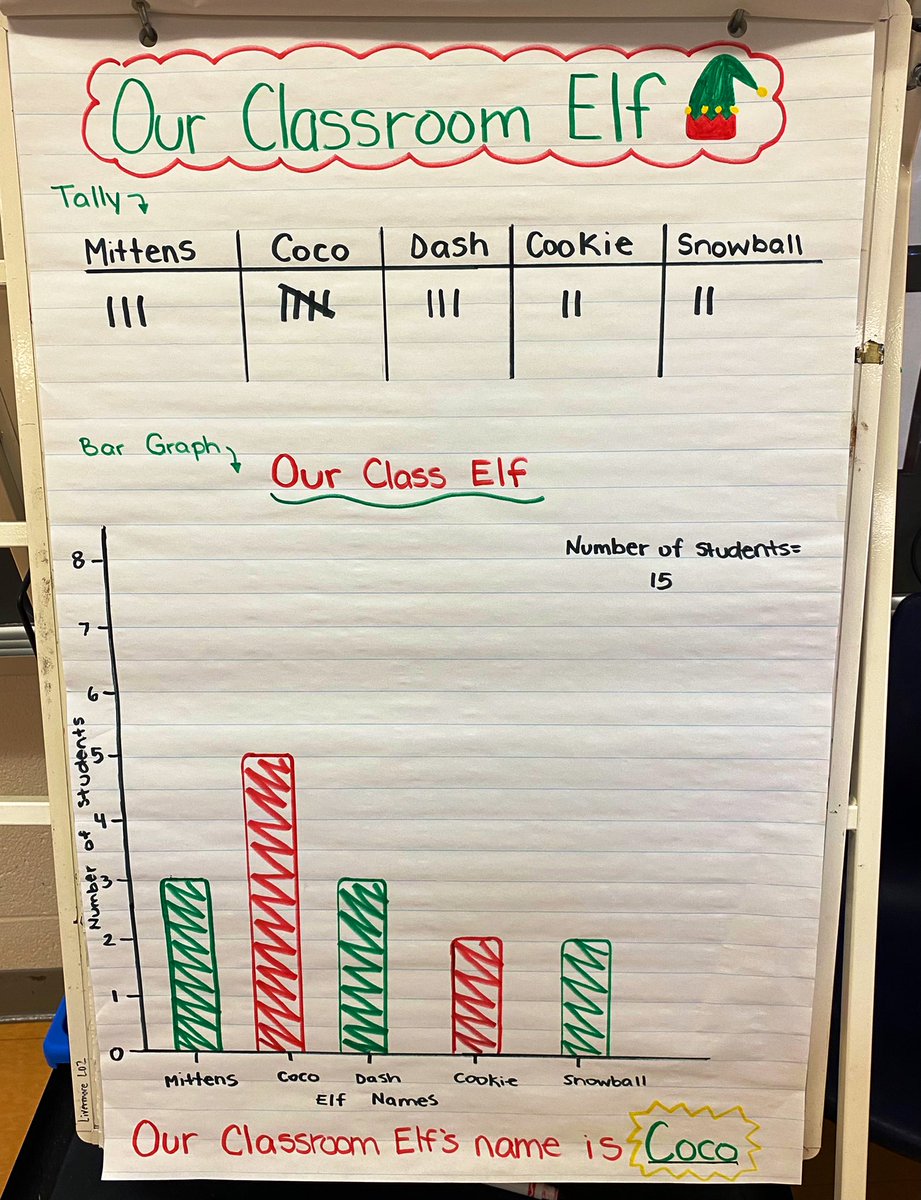 Our Classroom Elf
Tally
Mittens Coco Dash Cookie Snowball
Bar Graph
Our Class Elf
Number of students=
15
8
7
6
5
4
3
2
1
0
Number of students
Mittens Coco Dash Cookie Snowball
Elf Names
Our Classroom Elf's name is Coco
Livermore LO2